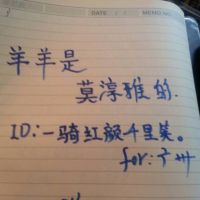 DATE
MEMO NO.
羊羊是
莫淳雅的.
ID:一骑红颜千里笑。
for: